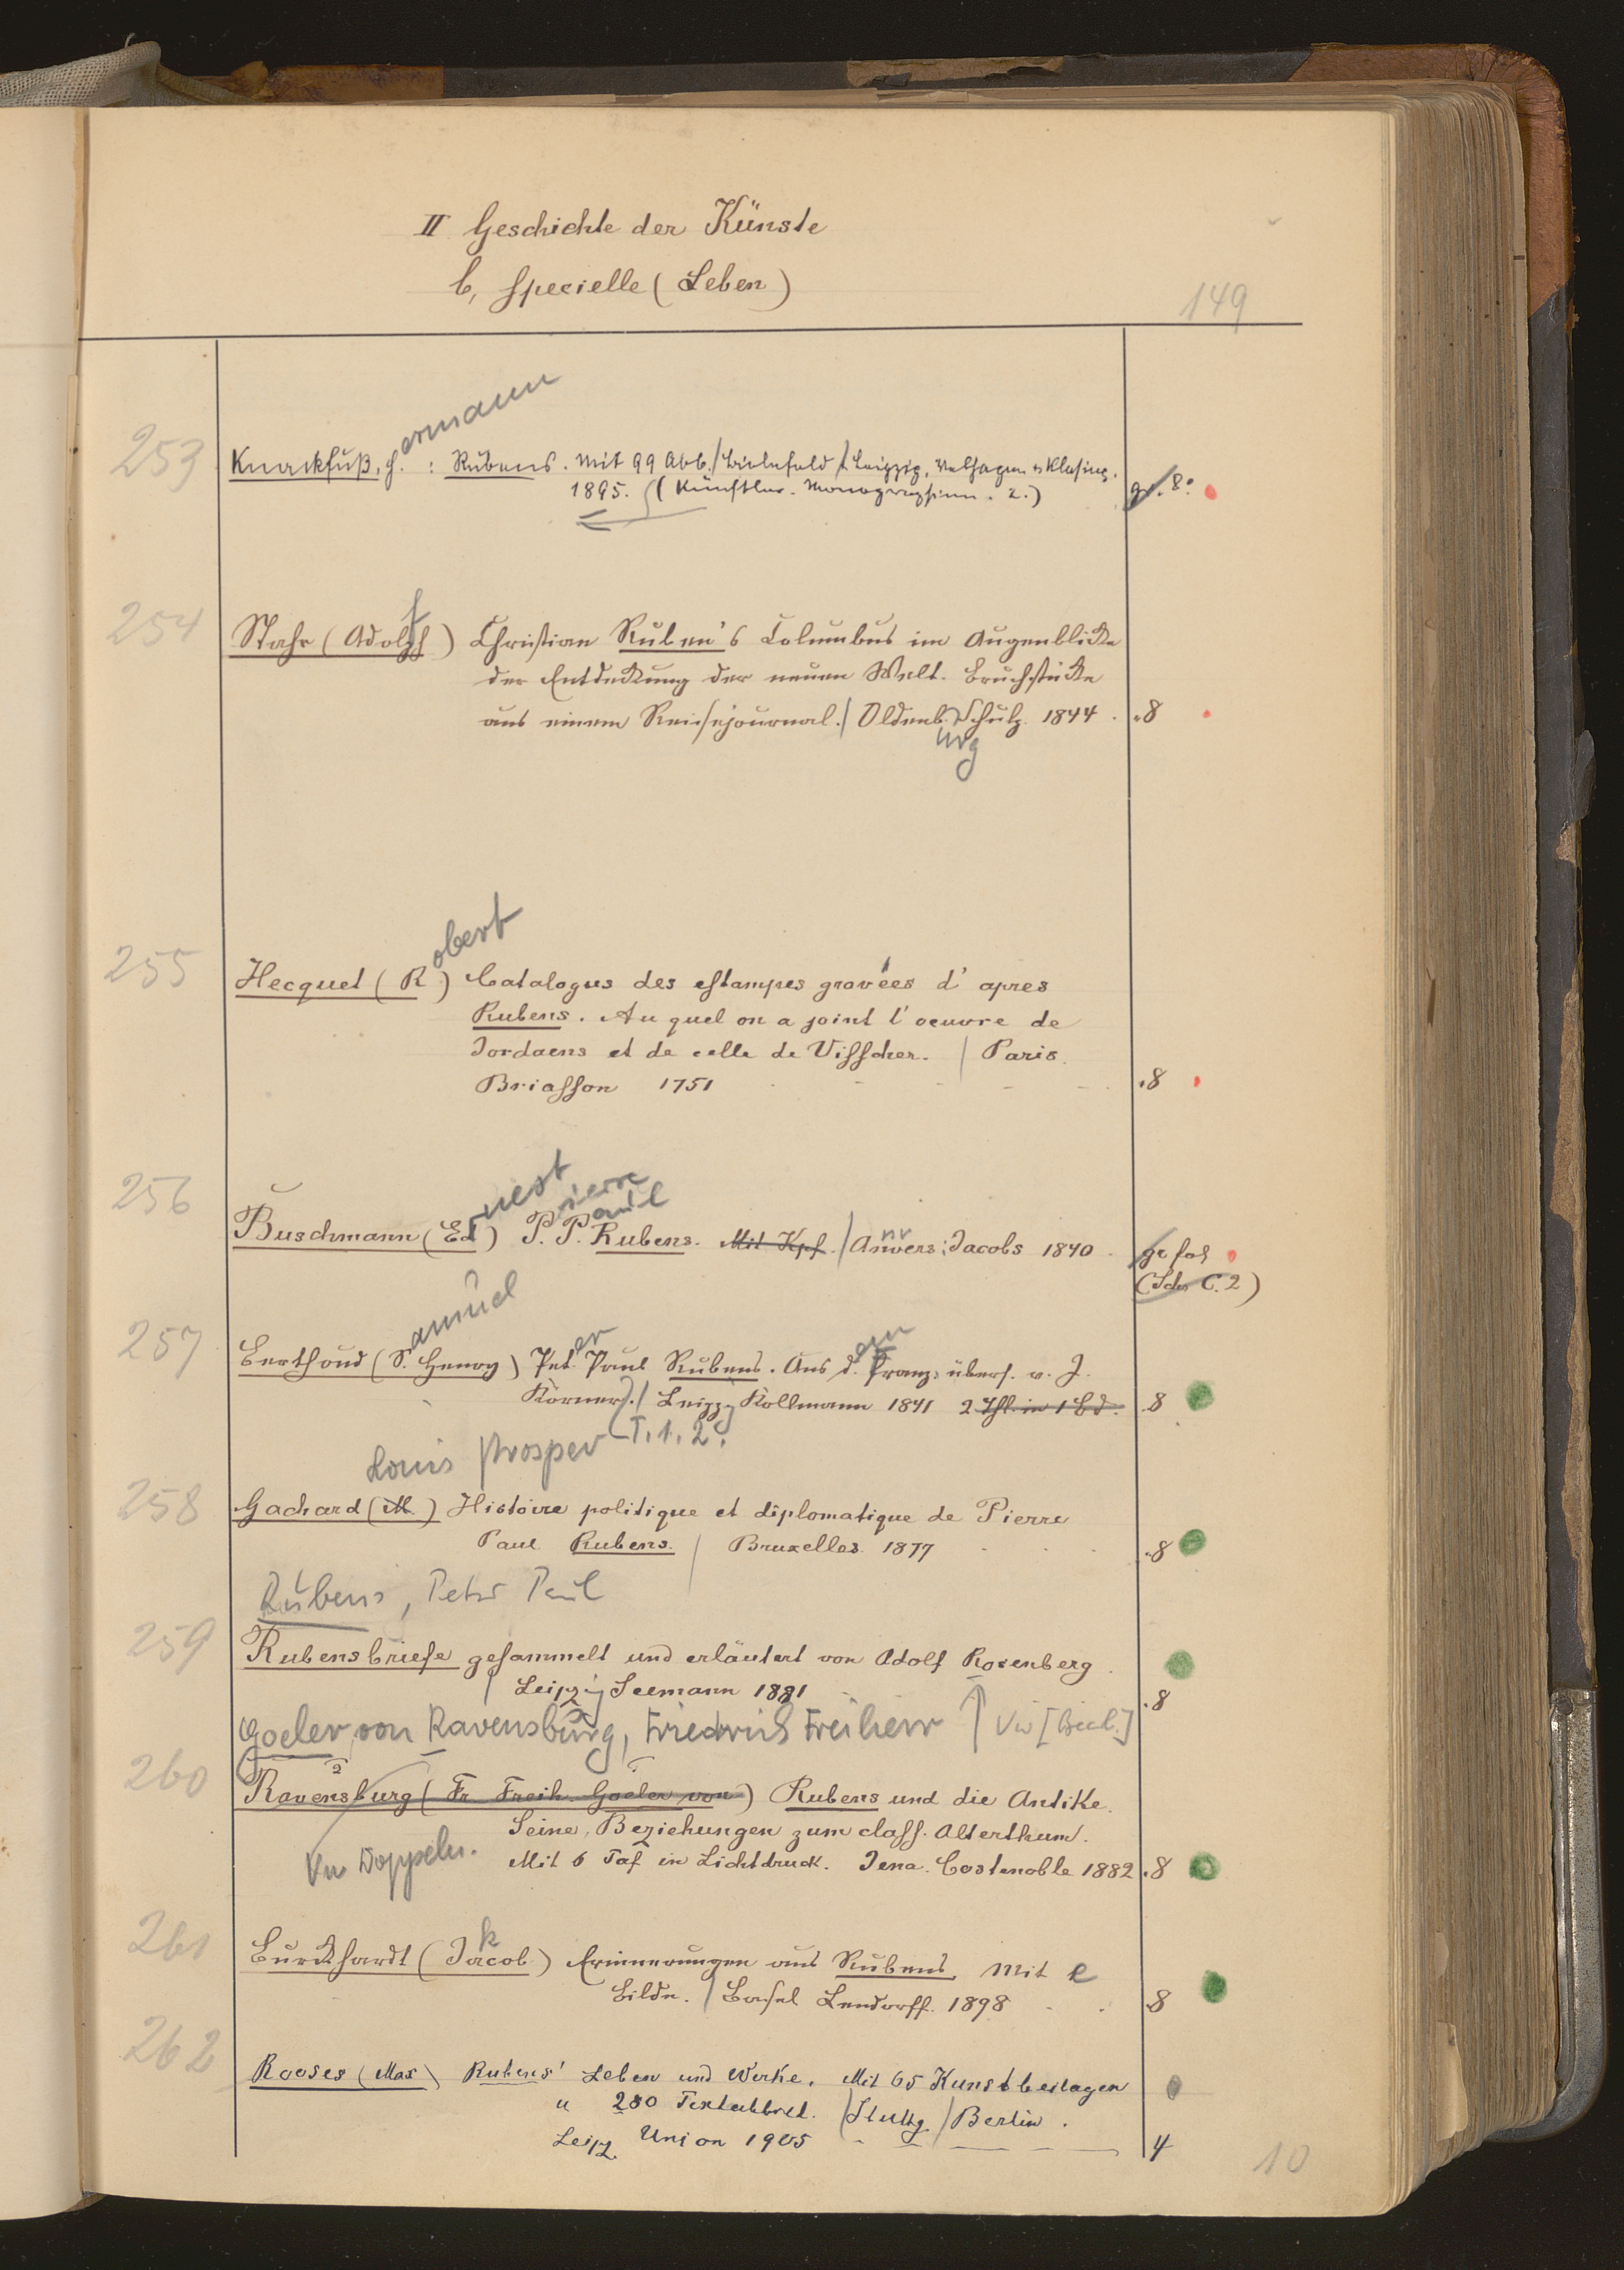 II Geschichte der Künste
b, specielle (Leben)
149
ermann
253 Knackfuß, H. : Rubens. Mit 99 Abb./Bielefeld / Leipzig, Velhagen & Klasing.
1895. (Künstler-Monographien. 2.) gr. 8°
f
254 Stahr (Adolph) Christian Ruben's Columbus im Augenblicke
der Entdeckung der neuen Welt. Bruchstücke
aus einem Reisejournal./ Oldenb. Schulz. 1844 . 8
urg
obert
255 Hecquet (R.) Catalogus des estampes gravées d'apres
Rubens. Au quel on a joint l'oeuvre de
Jordaens et de celle de Visscher. / Paris.
Briasson 1751 . 8
nest ierre aul
256 Buschmann (Ed) P. P. Rubens. Mit Kpf. / Anvers: Jacobs 1840 gr fol
nv
(Sch. C. 2)
amuel
er en
257 Berthoud (S. Henry) Pet. Paul Rubens. Aus d. Franz. übers. v. J.
Körner./ Leipzig Kollmann 1841 2 Thl. in 1 Bd. 8
T. 1. 2.
Louis Prosper
258 Gachard (M.) Histoire politique et diplomatique de Pierre
Paul Rubens. / Bruxelles. 1877 . 8
Rubens, Peter Paul
259 Rubensbriefe gesammelt und erläutert von Adolf Rosenberg.
/ Leipzig Seemann 1881 . 8
Goeler von Ravensburg, Friedrich Freiherr
260 Ravensburg (Fr. Freih. Goeler von) Rubens und die Antike.
Seine Beziehungen zum class. Alterthum.
Mit 6 Taf in Lichtdruck. Jena. Costenoble 1882 . 8
k
261 Burckhardt (Jacob) Erinnerungen aus Rubens. Mit e
Bildn. / Basel Lendorff. 1898 . 8
262 Rooses (Max) Rubens' Leben und Werke. Mit 65 Kunstbeilagen
u 280 Textabbild. / Stuttg / Berlin.
Leipz. Union 1905 4
10